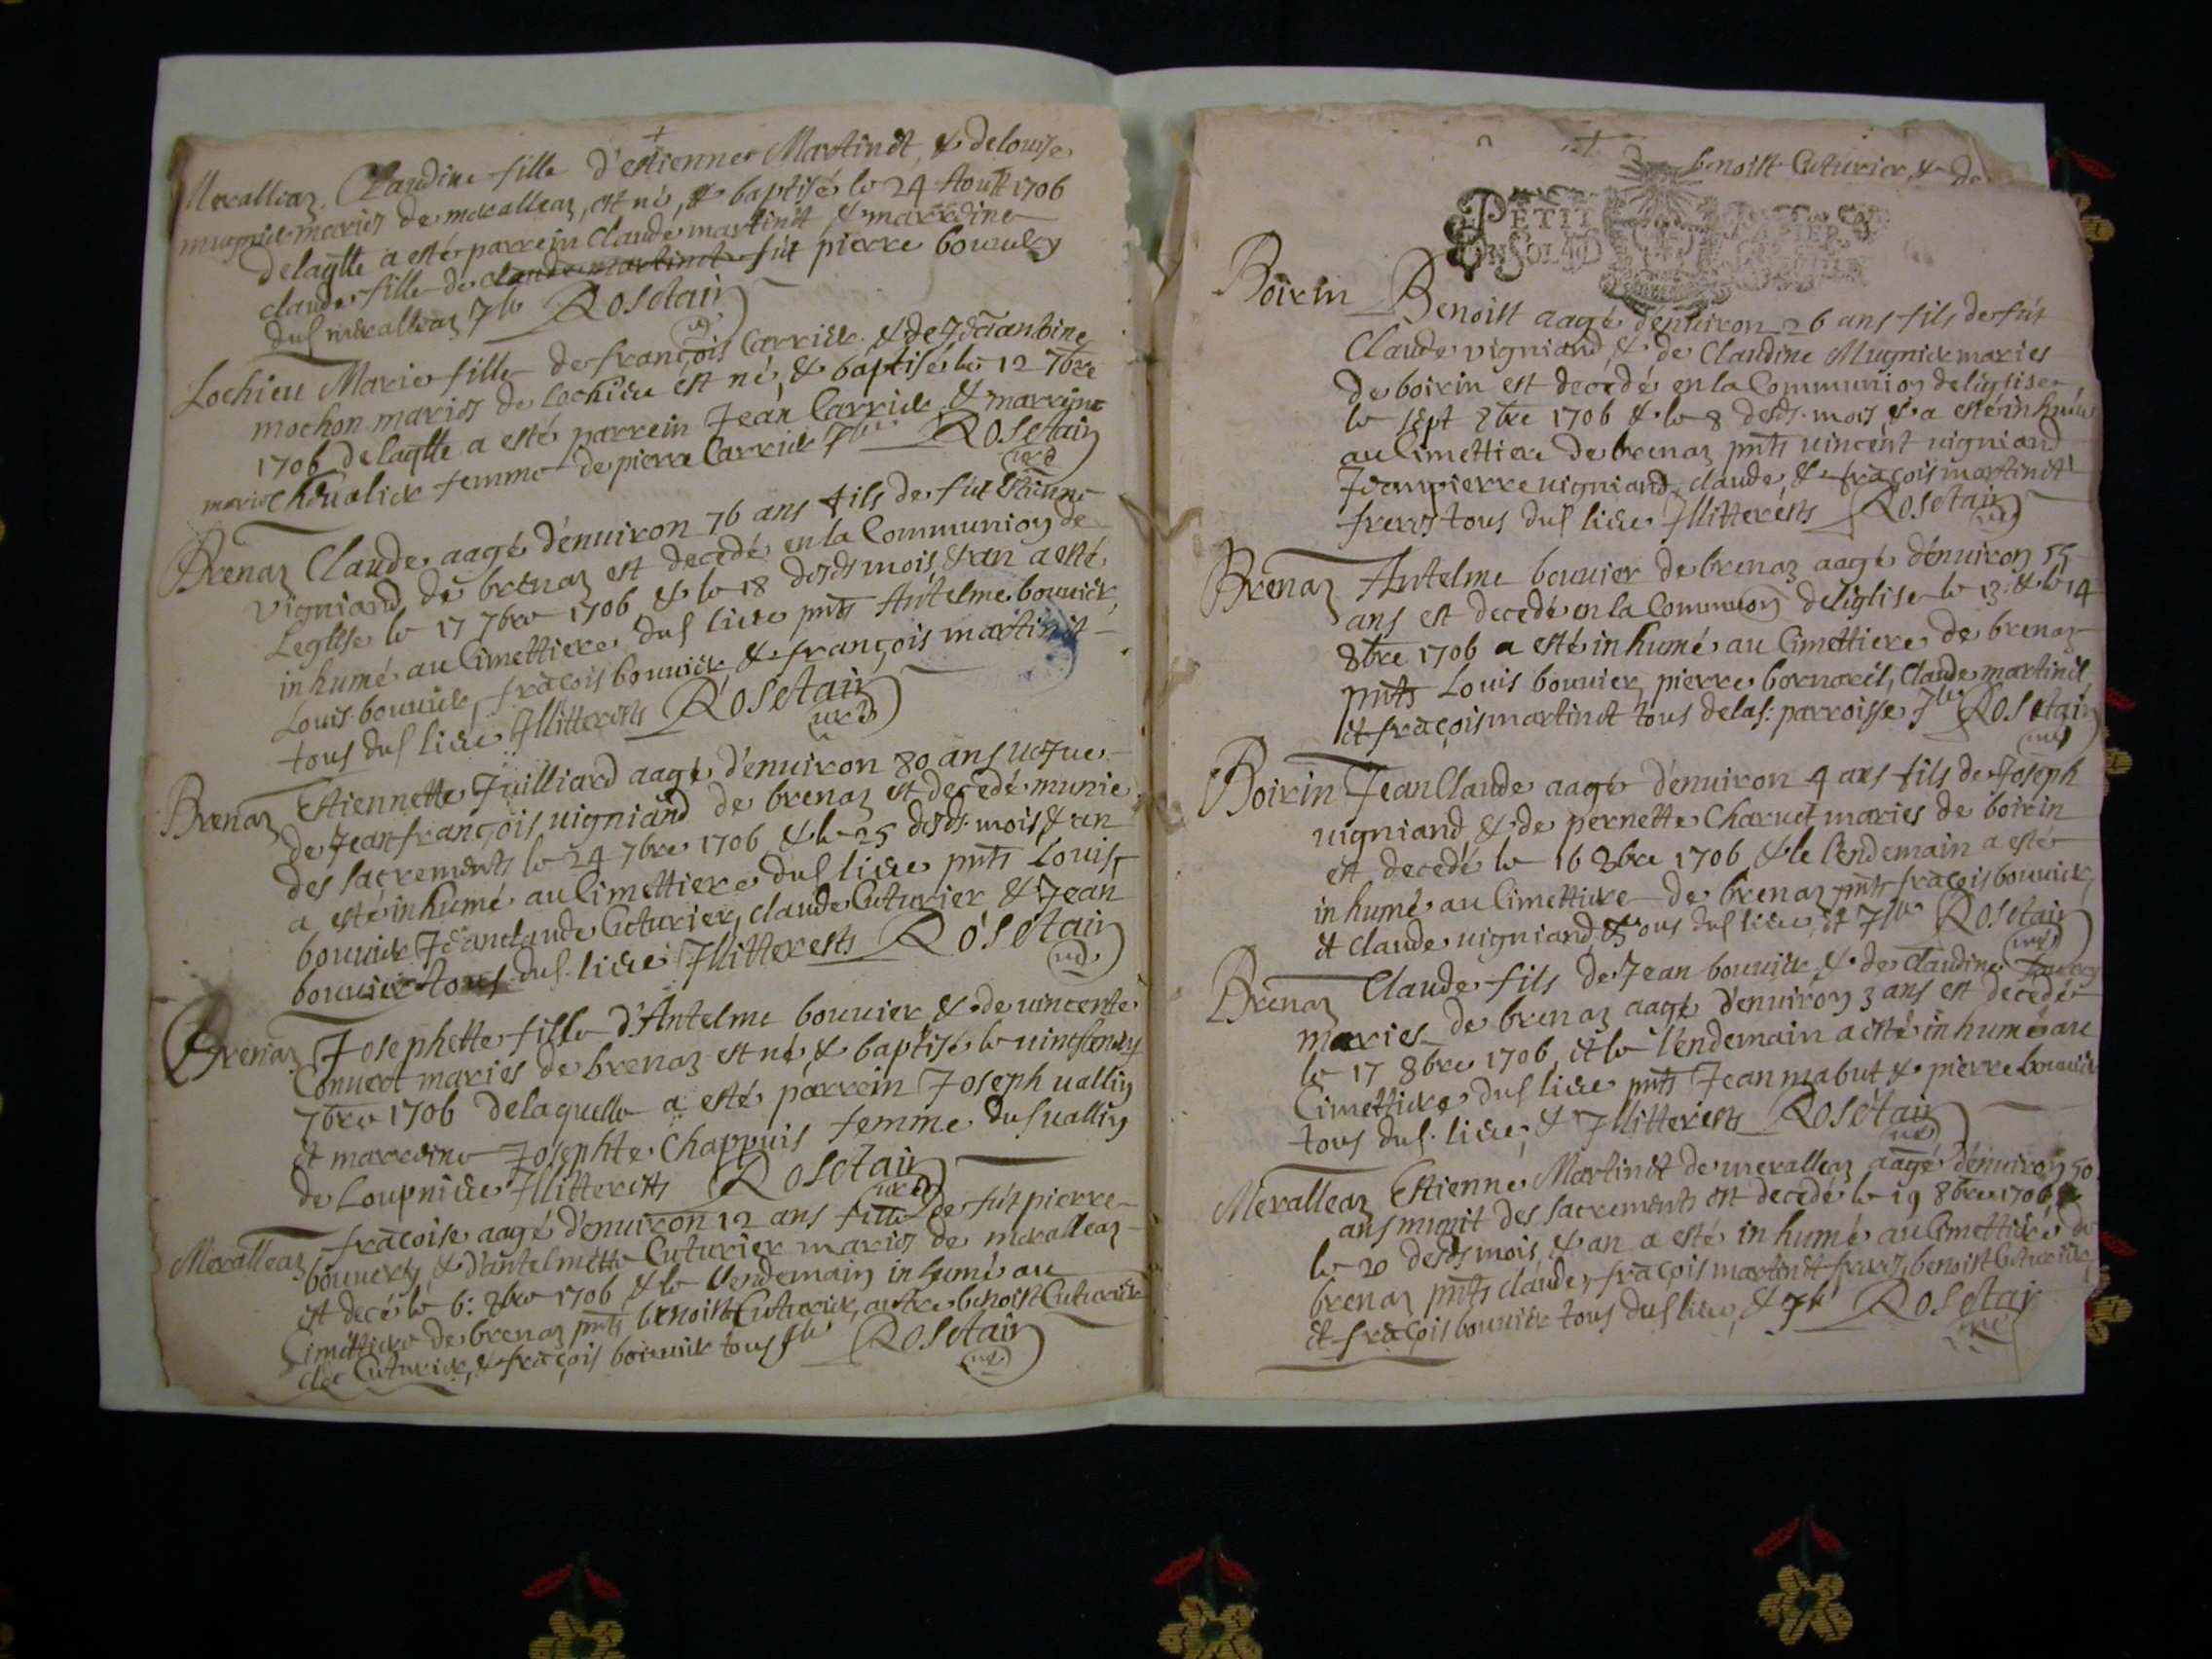 Meralleaz. Claudine fille d'estienne Martinet, & de louise
mugnier mariés de meralleaz, est né, & baptisé le 24 Aoust 1706
delaqlle a esté parrein Claude martinet & marreine
claude fille de claude martinet fût pierre bouuery
dud meralleaz Rosetain
Lochieu Marie fille de françois Carrier & de Jeanbine
mochon mariés de Lochieu est né, & baptisé le 12 7bre
1706 delaqlle a esté parrein Jean Carrier & marreine
marie Cheualier femme de pierre Carrier Rosetain
Brenaz Claude aagé d'enuiron 76 ans fils de fût Etienne
vigniand de brenaz est decedé en la Communion de
Leglise le 17 7bre 1706 & le 18 desds mois, & an a esté
inhumé au Cimettiere dud lieu pnts Antelme bouuier,
Louis bouuier, fraçois bouuier & françois martinet
tous dud lieu Jllitterests Rosetain
Brenaz Estiennette Juilliard aagé d'enuiron 80 ans uefue
de Jean françois uigniand de brenaz est decedé munie
des sacrements le 24 7bre 1706 & le 25 desds mois & an
a esté inhumé au Cimettiere dud lieu pnts Louis
bouuier Jeanclaude Cuturier, claude Cuturier & Jean
bouuier tous dud lieu Jllitterests Rosetain
Brenaz Josephette fille d'Antelme bouuier & de uincente
Conuert mariés de brenaz est né & baptisé le
7bre 1706 delaquelle a esté parrein Joseph uallin
et marreine Josephte Chappuis femme dud uallin
de Loupnieu Jllitterests Rosetain
Meralleaz fraçoise aagé d'enuiron 12 ans fille de fût pierre
bouuery & d'antelmette Cuturier mariés de meralleaz
est decé le 6: 8bre 1706 & le Lendemain inhumé au
Cimettiere de brenaz pnts benoist Cuturier, autre benoist Cuturier
Cuturier, & fraçois bouuier tous Rosetain
benoist Cuturier, & de
PETIT PAPIER
UN SOL
Boirin Benoist aagé d'enuiron 26 ans fils de fût
Claude vigniand & de Claudine Mugnier maries
de boirin est decédé en la Communion de liglise
le sept 8bre 1706 & le 8 desds mois, & a esté inhumé
au Cimettiere de brenaz pnts uincent uigniand
Jeanpierre uigniand, claude, & fraçois martinet
freres tous dud lieu Jllitterests Rosetain
Brenaz Antelme bouuier de brenaz aagé d'enuiron 55
ans est decedé en la Communion deliglise le 13: & le 14
8bre 1706 a esté inhumé au Cimettiere de brenaz
pnts Louis bouuier, pierre bornarel, Claude martinet
et fraçois martinet tous delad: parroisse Rosetain
Boirin Jean Claude aagé d'enuiron 4 ans fils de Joseph
uigniand & de pernette Charuet maries de boirin
est decedé le 16 8bre 1706 & le lendemain a esté
inhumé au Cimettiere de brenaz pnts fraçois bouuier,
et claude uigniand tous dud lieu, et Rosetain
Brenaz Claude fils de Jean bouuier & de Claudine
maries de brenaz aagé d'enuiron 3 ans est decedé
le 17 8bre 1706, et le lendemain a esté inhumé au
Cimettiere dud lieu pnts Jean mabut & pierre bouuier
tous dud. lieu, & Jllitterests Rosetain
Meralleaz Estienne Martinet de meralleaz aagé d'enuiron 50
ans munit des sacrements est decedé le 19 8bre 1706 &
le 20 desds mois, & an a esté inhumé au Cimettiere de
brenaz pnts claude, fraçois martinet freres, benoist Cuturier,
et fraçois bouuier tous dud lieu, & Rosetain